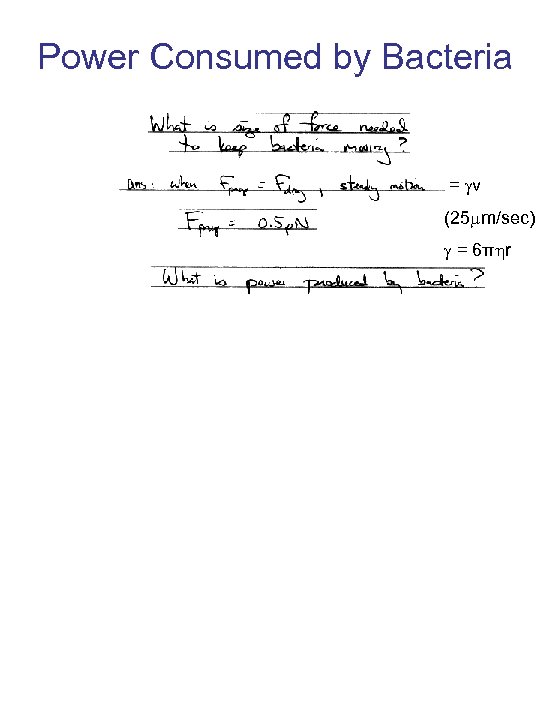 Power Consumed by Bacteria
What is size of force needed
to keep bacteria moving?
Ans: when Fprop = Fdrag, steady motion = γv
Fprop = 0.5 pN (25μm/sec)
γ = 6πηr
What is power produced by bacteria?